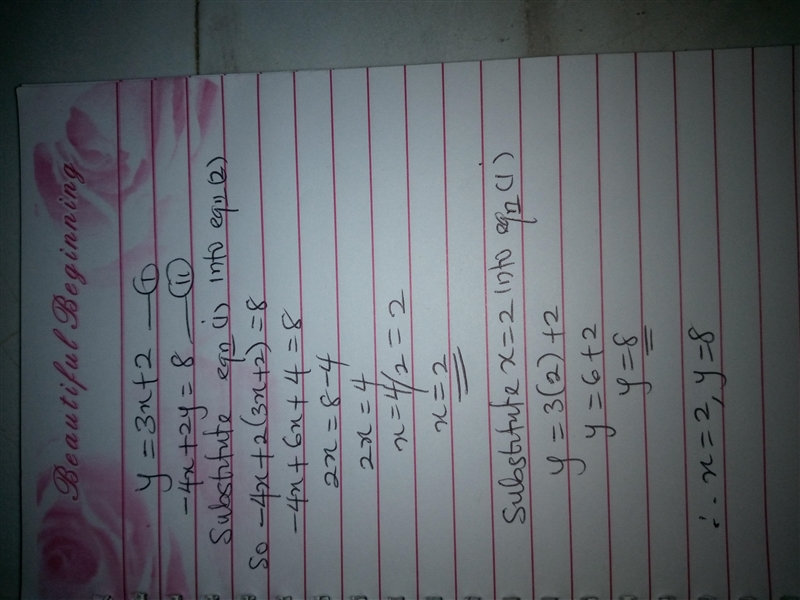 Beautiful Beginning
y = 3x + 2 — (i)
-4x + 2y = 8 — (ii)
Substitute eqn (i) into eqn (2)
So -4x + 2(3x+2) = 8
-4x + 6x + 4 = 8
2x = 8 - 4
2x = 4
x = 4/2 = 2
x = 2
Substitute x = 2 into eqn (i)
y = 3(2) + 2
y = 6 + 2
y = 8
∴ x = 2, y = 8